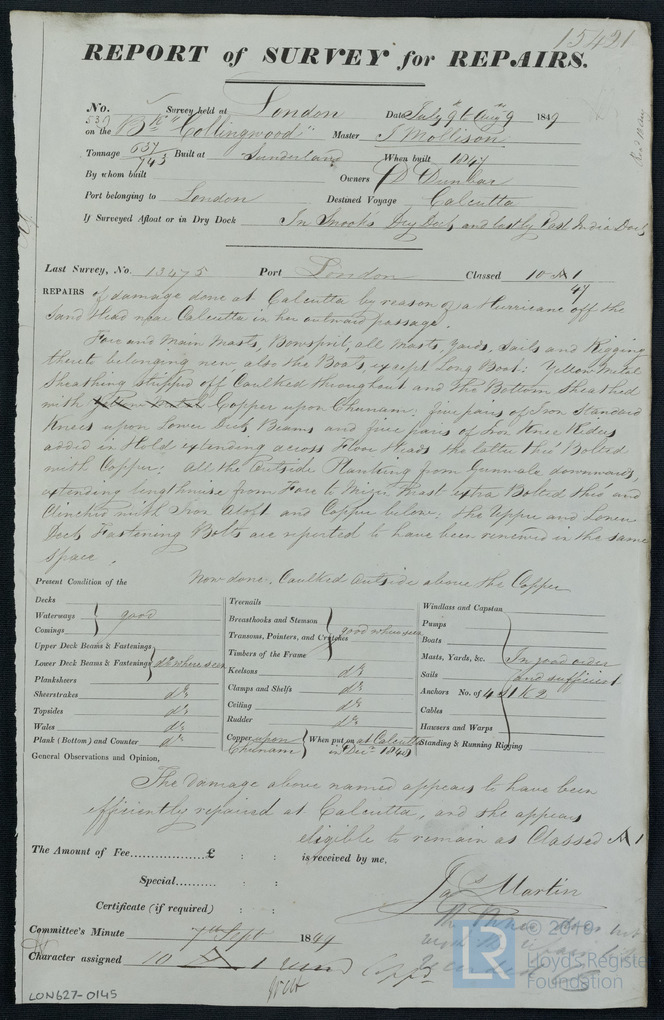 15421
REPORT of SURVEY for REPAIRS.
No. 539 Survey held at London Date July 9 to Aug 9 1849
on the Bk "Collingwood" Master J Mollison
Tonnage 637/743 Built at Sunderland When built 1847
By whom built Owners D Dunbar
Port belonging to London Destined Voyage Calcutta
If Surveyed Afloat or in Dry Dock In Snooks Dry Dock and lastly East India Dock
Last Survey, No. 13475 Port London Classed 10 A 1
47
REPAIRS of damage done at Calcutta by reason of a Hurricane off the
Sand Head near Calcutta in her outward passage.
Fore and Main Masts, Bowsprit, all Masts, Yards, Sails and Rigging
thereto belonging new, also the Boats, except Long Boat: Yellow Metal
Sheathing stripped off Caulked throughout and The Bottom Sheathed
with Copper upon Chunam: five pairs of Iron Standard
Knees upon Lower Deck Beams and five pairs of Iron Knee Riders
added in Hold extending across Floor Heads the latter thro' Bolted
with Copper: All the Outside Planking from Gunwale downwards,
extending lengthwise from Fore to Mizen Mast extra Bolted thro' and
Clinched with Iron aloft and Copper below: the Upper and Lower
Deck Fastening Bolts are reported to have been renewed in the same
space.
Present Condition of the Now done. Caulked Outside above the Copper
Decks
Waterways good
Comings
Upper Deck Beams & Fastenings
Lower Deck Beams & Fastenings do where seen
Planksheers
Sheerstrakes do
Topsides do
Wales do
Plank (Bottom) and Counter do
Treenails
Breasthooks and Stemson
Transoms, Pointers, and Crutches good where seen
Timbers of the Frame
Keelsons do
Clamps and Shelfs do
Ceiling do
Rudder do
Copper upon Chunam When put on at Calcutta
in Decr 1848
Windlass and Capstan
Pumps
Boats
Masts, Yards, &c. In good order
Sails and sufficient
Anchors No. of 4 & 1 K 2
Cables
Hausers and Warps
Standing & Running Rigging
General Observations and Opinion,
The damage above named appears to have been
efficiently repaired at Calcutta, and she appears
eligible to remain as Classed A 1
The Amount of Fee...............£ : : is received by me,
Special.......... : :
Certificate (if required) : :
Jas Martin
Committee's Minute 7th Sept 1849
Character assigned 10 A 1
LON627-0145
© 2019
Lloyd's Register
Foundation